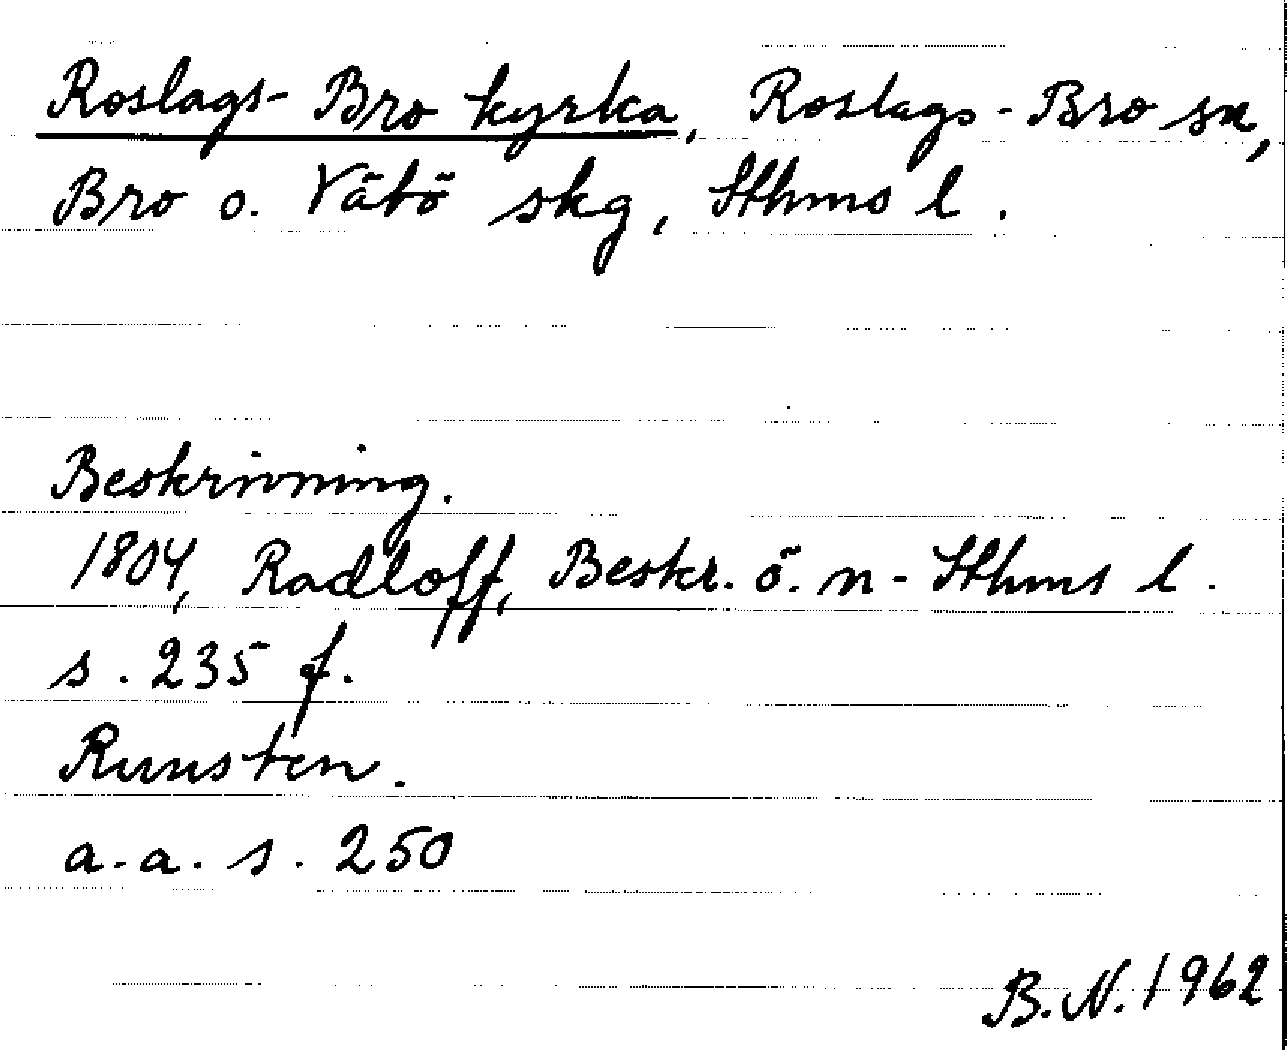 Roslags-Bro kyrka, Roslags-Bro sn,
Bro o. Vätö skg, Sthms l.
Beskrivning.
1804, Radloff, Beskr. ö. n. Sthms l.
s. 235 f.
Runsten.
a.a. s. 250
B.N. 1962